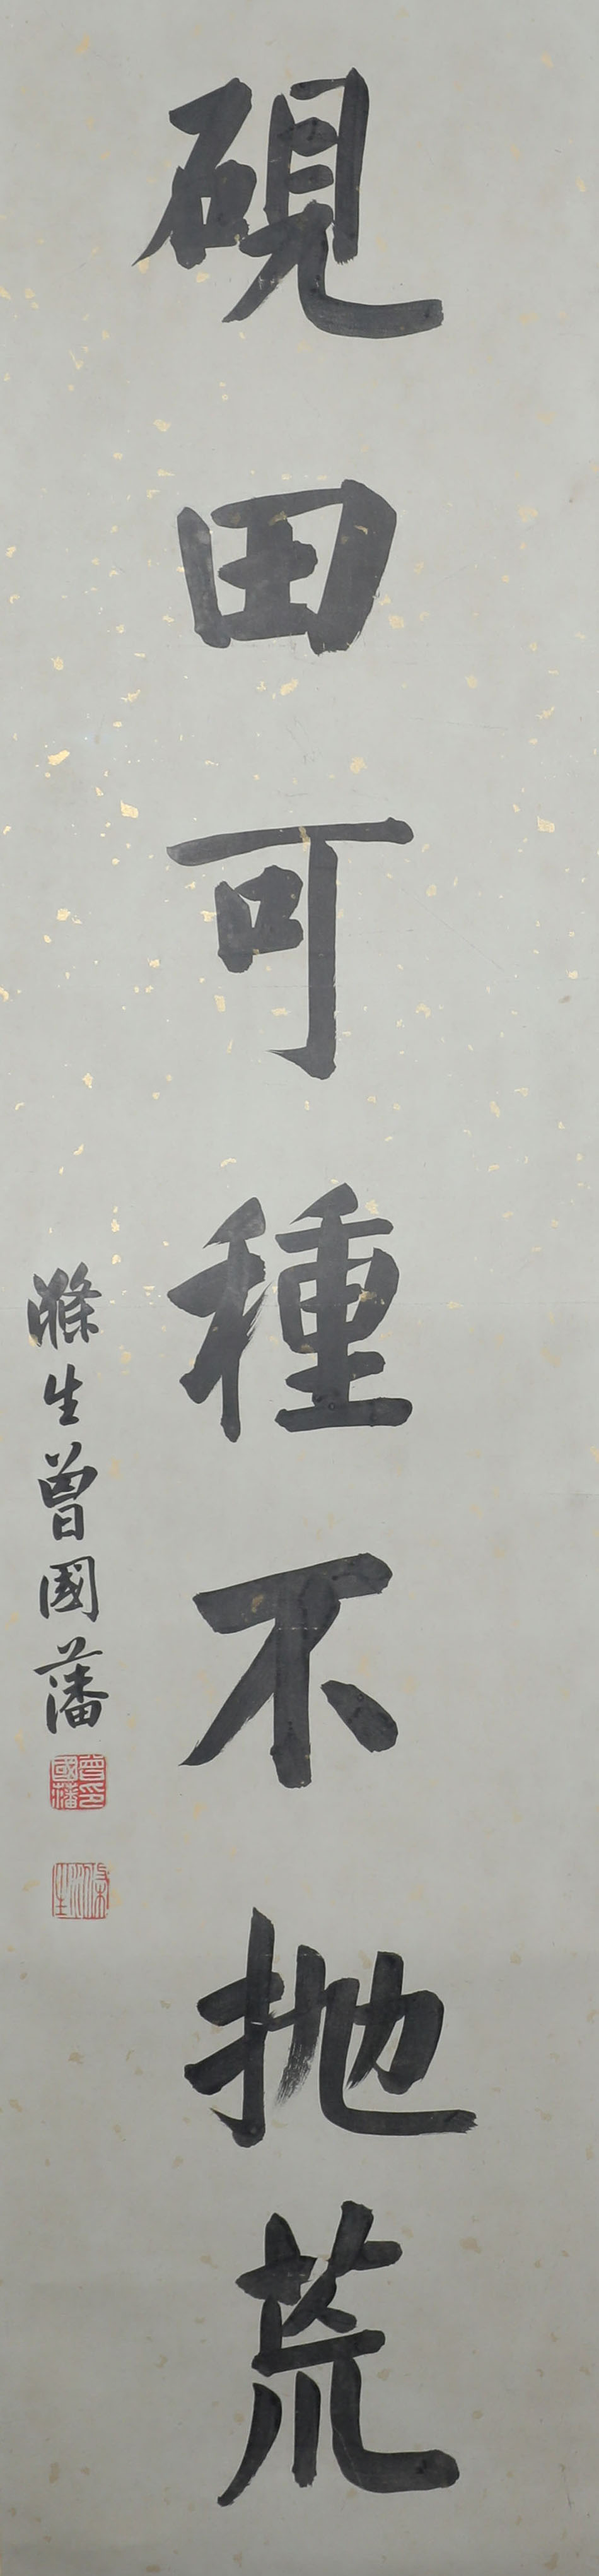 硯田可種不拋荒
滌生曾國藩
曾國藩印
滌生